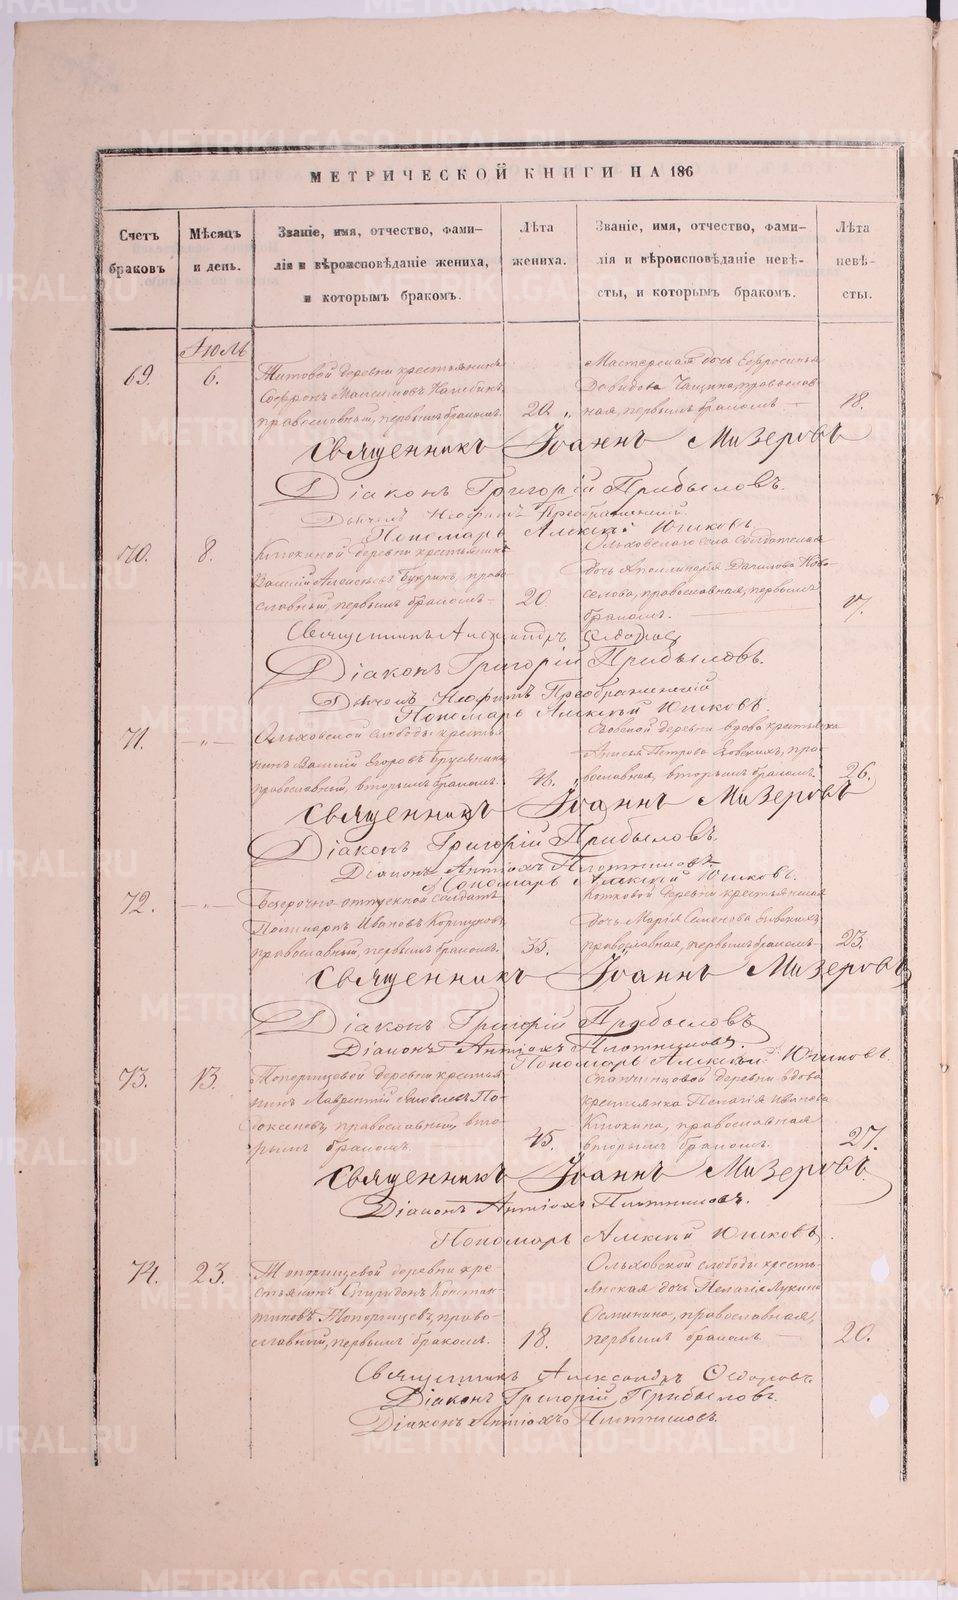 МЕТРИЧЕСКОЙ КНИГИ НА 186
Счетъ браковъ
Мѣсяцъ и день.
Званіе, имя, отчество, фами-
лія и вѣроисповѣданіе жениха,
и которымъ бракомъ.
Лѣта
жениха.
Званіе, имя, отчество, фами-
лія и вѣроисповѣданіе невѣ-
сты, и которымъ бракомъ.
Лѣта
невѣ-
сты.
Іюль
69.
6.
Титовой деревни крестьянинъ
Максимовъ
православный, первымъ бракомъ.
20.
дочь Евфросинья
Давидова православ-
ная, первымъ бракомъ —
18.
Священникъ Іоаннъ Мизеровъ
Діаконъ Григорій Прибыловъ.
Дьячекъ Неофитъ Преображенскій
Пономарь Алексѣй Юшковъ
70.
8.
Клюкиной деревни крестьянинъ
Василій Алексѣевъ Букринъ, право-
славный, первымъ бракомъ —
20.
Ольховскаго села солдатская
дочь Аполлинарія Данилова
православная, первымъ
бракомъ.
17.
Священникъ Александръ
Діаконъ Григорій Прибыловъ.
Дьячекъ Неофитъ Преображенскій
Пономарь Алексѣй Юшковъ.
71.
— „ —
Ольховской слободы кресть-
нинъ Василій Егоровъ Брусянинъ
православный, вторымъ бракомъ.
деревни вдова крестьянка
Петрова пра-
вославная, вторымъ бракомъ.
26.
Священникъ Іоаннъ Мизеровъ
Діаконъ Григорій Прибыловъ.
Діаконъ Антіохъ Плотниковъ
Пономарь Алексѣй Юшковъ.
72.
— „ —
Безсрочно отпускной солдатъ
Поликарпъ Ивановъ
православный, первымъ бракомъ.
35.
деревни крестьянская
дочь Марія Семенова
православная, первымъ бракомъ —
23.
Священникъ Іоаннъ Мизеровъ
Діаконъ Григорій Прибыловъ
Діаконъ Антіохъ Плотниковъ.
Пономарь Алексѣй Юшковъ.
73.
13.
Топорищевой деревни крестья-
нинъ Лаврентій Яковлевъ
православный, вто-
рымъ бракомъ.
45.
деревни вдова
крестьянка Пелагія Иванова
Клюкина, православная
вторымъ бракомъ.
27.
Священникъ Іоаннъ Мизеровъ
Діаконъ Антіохъ Плотниковъ.
Пономарь Алексѣй Юшковъ.
74.
23.
Топорищевой деревни кре-
стьянинъ Спиридонъ Констан-
тиновъ Топорищевъ, право-
славный, первымъ бракомъ.
18.
Ольховской слободы кресть-
янская дочь Пелагія Лукина
Осминина, православная,
первымъ бракомъ —
20.
Священникъ Александръ Ѳедоровъ
Діаконъ Григорій Прибыловъ.
Діаконъ Антіохъ Плотниковъ.
METRIKI.GASO-URAL.RU